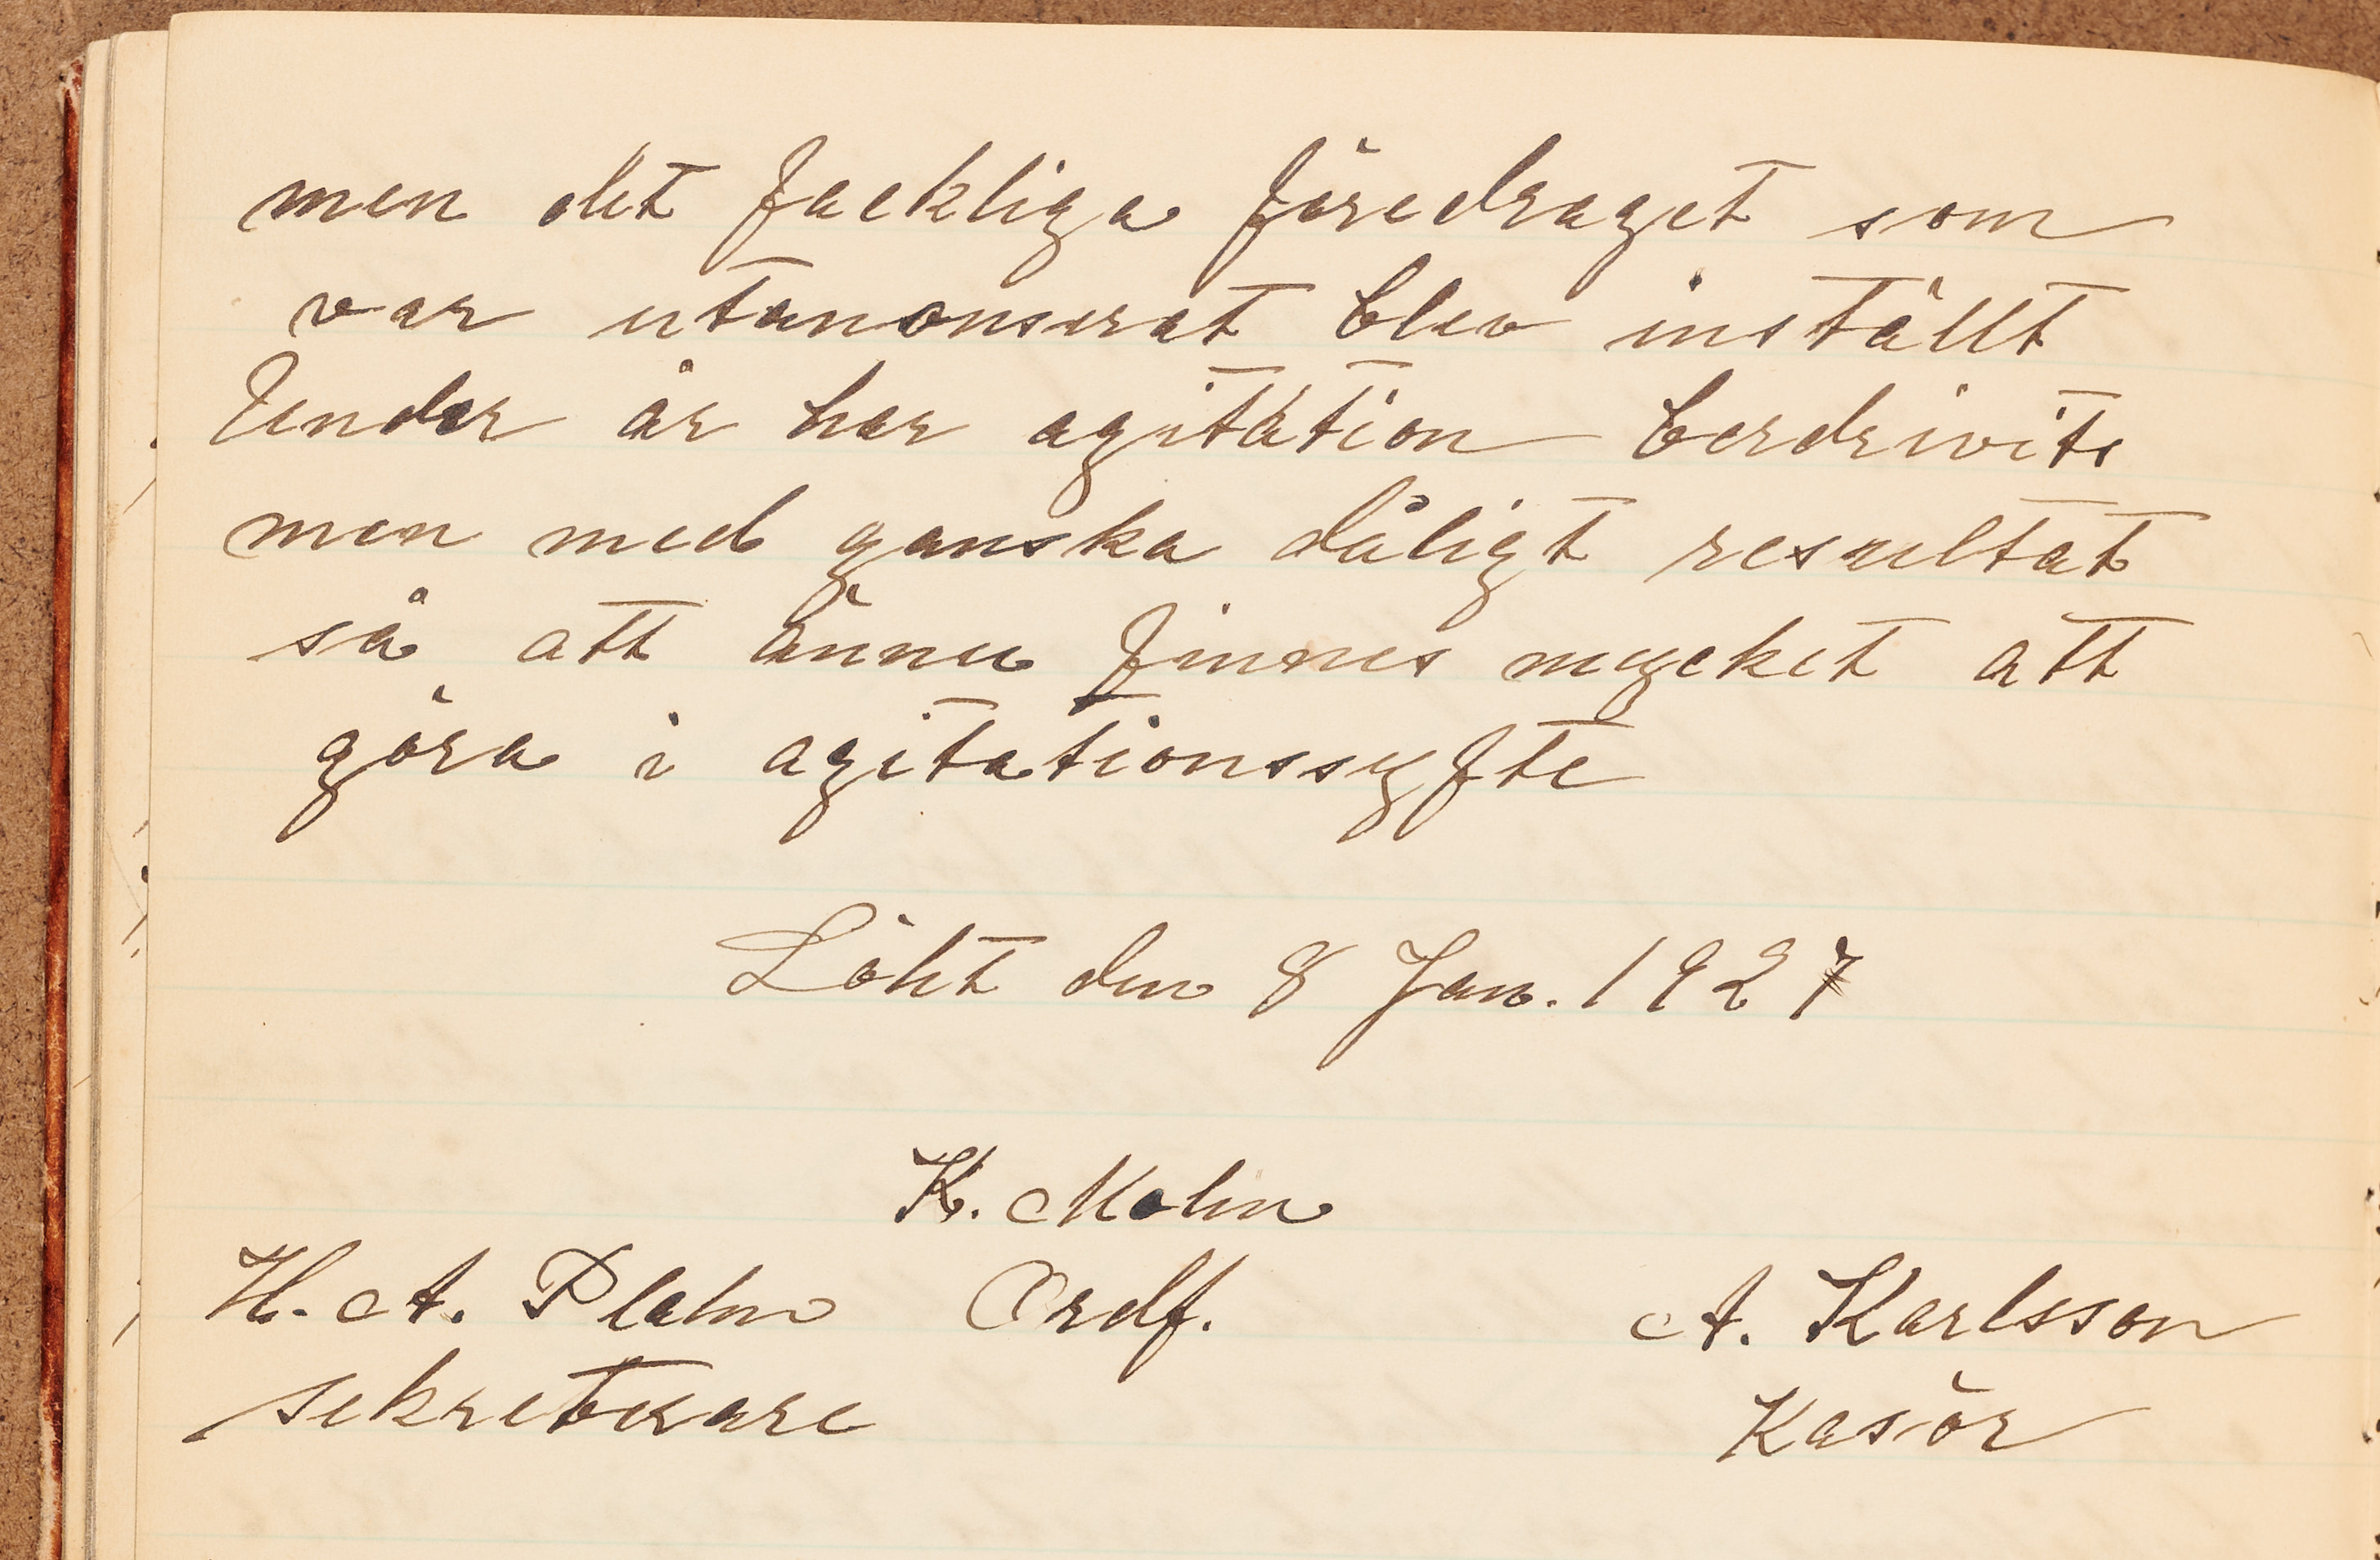 men det fackliga föredraget som
var utanonserat blev inställt
Under år har agitation berdrivits
men med ganska dåligt resultat
så att ännu finnes mycket att
göra i agitationssyfte
Löht den 8 Jan. 1927
K. Molin
H. A. Plahn Ordf. A. Karlsson
sekreterare Kasör